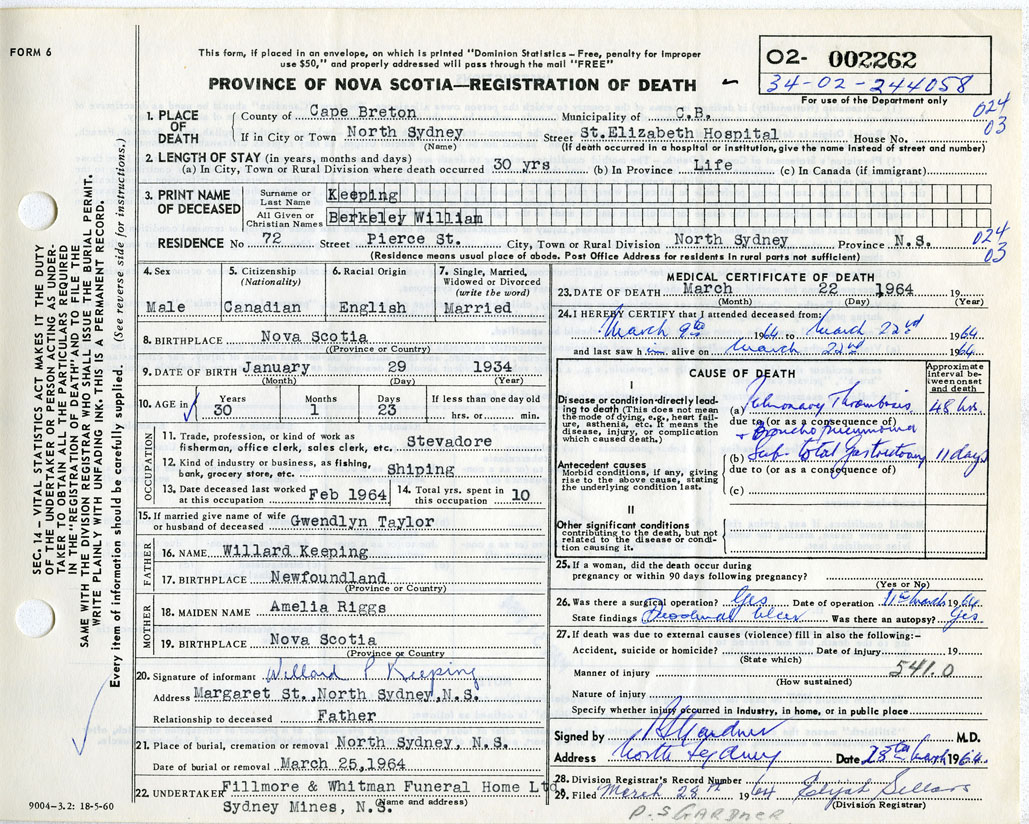 FORM 6
This form, if placed in an envelope, on which is printed "Dominion Statistics – Free, penalty for improper
use $50," and properly addressed will pass through the mail "FREE"
PROVINCE OF NOVA SCOTIA—REGISTRATION OF DEATH
02- 002262
34-02-244058
For use of the Department only
024
03
1. PLACE OF DEATH
County of Cape Breton Municipality of C.B.
If in City or Town North Sydney Street St.Elizabeth Hospital House No.
(Name) (If death occurred in a hospital or institution, give the name instead of street and number)
2. LENGTH OF STAY (in years, months and days)
(a) In City, Town or Rural Division where death occurred 30 yrs (b) In Province Life (c) In Canada (if immigrant)
3. PRINT NAME OF DECEASED
Surname or Last Name Keeping
All Given or Christian Names Berkeley William
RESIDENCE No 72 Street Pierce St. City, Town or Rural Division North Sydney Province N.S.
(Residence means usual place of abode. Post Office Address for residents in rural parts not sufficient)
024
03
4. Sex
Male
5. Citizenship (Nationality)
Canadian
6. Racial Origin
English
7. Single, Married, Widowed or Divorced (write the word)
Married
8. BIRTHPLACE Nova Scotia
(Province or Country)
9. DATE OF BIRTH January 29 1934
(Month) (Day) (Year)
10. AGE in Years 30 Months 1 Days 23 If less than one day old
hrs. or min.
OCCUPATION
11. Trade, profession, or kind of work as
fisherman, office clerk, sales clerk, etc. Stevadore
12. Kind of industry or business, as fishing,
bank, grocery store, etc. Shiping
13. Date deceased last worked at this occupation Feb 1964
14. Total yrs. spent in this occupation 10
15. If married give name of wife
or husband of deceased Gwendlyn Taylor
FATHER
16. NAME Willard Keeping
17. BIRTHPLACE Newfoundland
(Province or Country)
MOTHER
18. MAIDEN NAME Amelia Riggs
19. BIRTHPLACE Nova Scotia
(Province or Country
20. Signature of informant Willard P Keeping
Address Margaret St.,North Sydney,N.S.
Relationship to deceased Father
21. Place of burial, cremation or removal North Sydney, N.S.
Date of burial or removal March 25,1964
22. UNDERTAKER Fillmore & Whitman Funeral Home Ltd
Sydney Mines, N.S.
(Name and address)
MEDICAL CERTIFICATE OF DEATH
23. DATE OF DEATH March 22 1964 19
(Month) (Day) (Year)
24. I HEREBY CERTIFY that I attended deceased from:
March 9th 1964 to March 22nd 1964
and last saw him alive on March 22nd 1964
CAUSE OF DEATH
Approximate interval between onset and death
I
Disease or condition directly leading to death (This does not mean
the mode of dying, e.g., heart failure, asthenia, etc. It means the
disease, injury, or complication
which caused death.)
(a) Pulmonary Thrombosis 48 hrs.
due to (or as a consequence of)
+ Bronchopneumonia
(b) Sub-total gastrectomy 11 days
due to (or as a consequence of)
(c)
Antecedent causes
Morbid conditions, if any, giving
rise to the above cause, stating
the underlying condition last.
II
Other significant conditions
contributing to the death, but not
related to the disease or condition
causing it.
25. If a woman, did the death occur during
pregnancy or within 90 days following pregnancy?
(Yes or No)
26. Was there a surgical operation? Yes Date of operation 11th March 1964
State findings Duodenal ulcer Was there an autopsy? Yes
27. If death was due to external causes (violence) fill in also the following:–
Accident, suicide or homicide? Date of injury 19
(State which)
Manner of injury 541.0
(How sustained)
Nature of injury
Specify whether injury occurred in industry, in home, or in public place
Signed by Gardner M.D.
Address North Sydney Date 25th March 1964
28. Division Registrar's Record Number
29. Filed March 28th 1964 Elijah Sellars
(Division Registrar)
P.S GARDNER
SEC. 14 – VITAL STATISTICS ACT MAKES IT THE DUTY
OF THE UNDERTAKER OR PERSON ACTING AS UNDER-
TAKER TO OBTAIN ALL THE PARTICULARS REQUIRED
IN THE "REGISTRATION OF DEATH" AND TO FILE THE
SAME WITH THE DIVISION REGISTRAR WHO SHALL ISSUE THE BURIAL PERMIT.
WRITE PLAINLY WITH UNFADING INK. THIS IS A PERMANENT RECORD.
Every item of information should be carefully supplied. (See reverse side for instructions.)
9004-3.2: 18-5-60